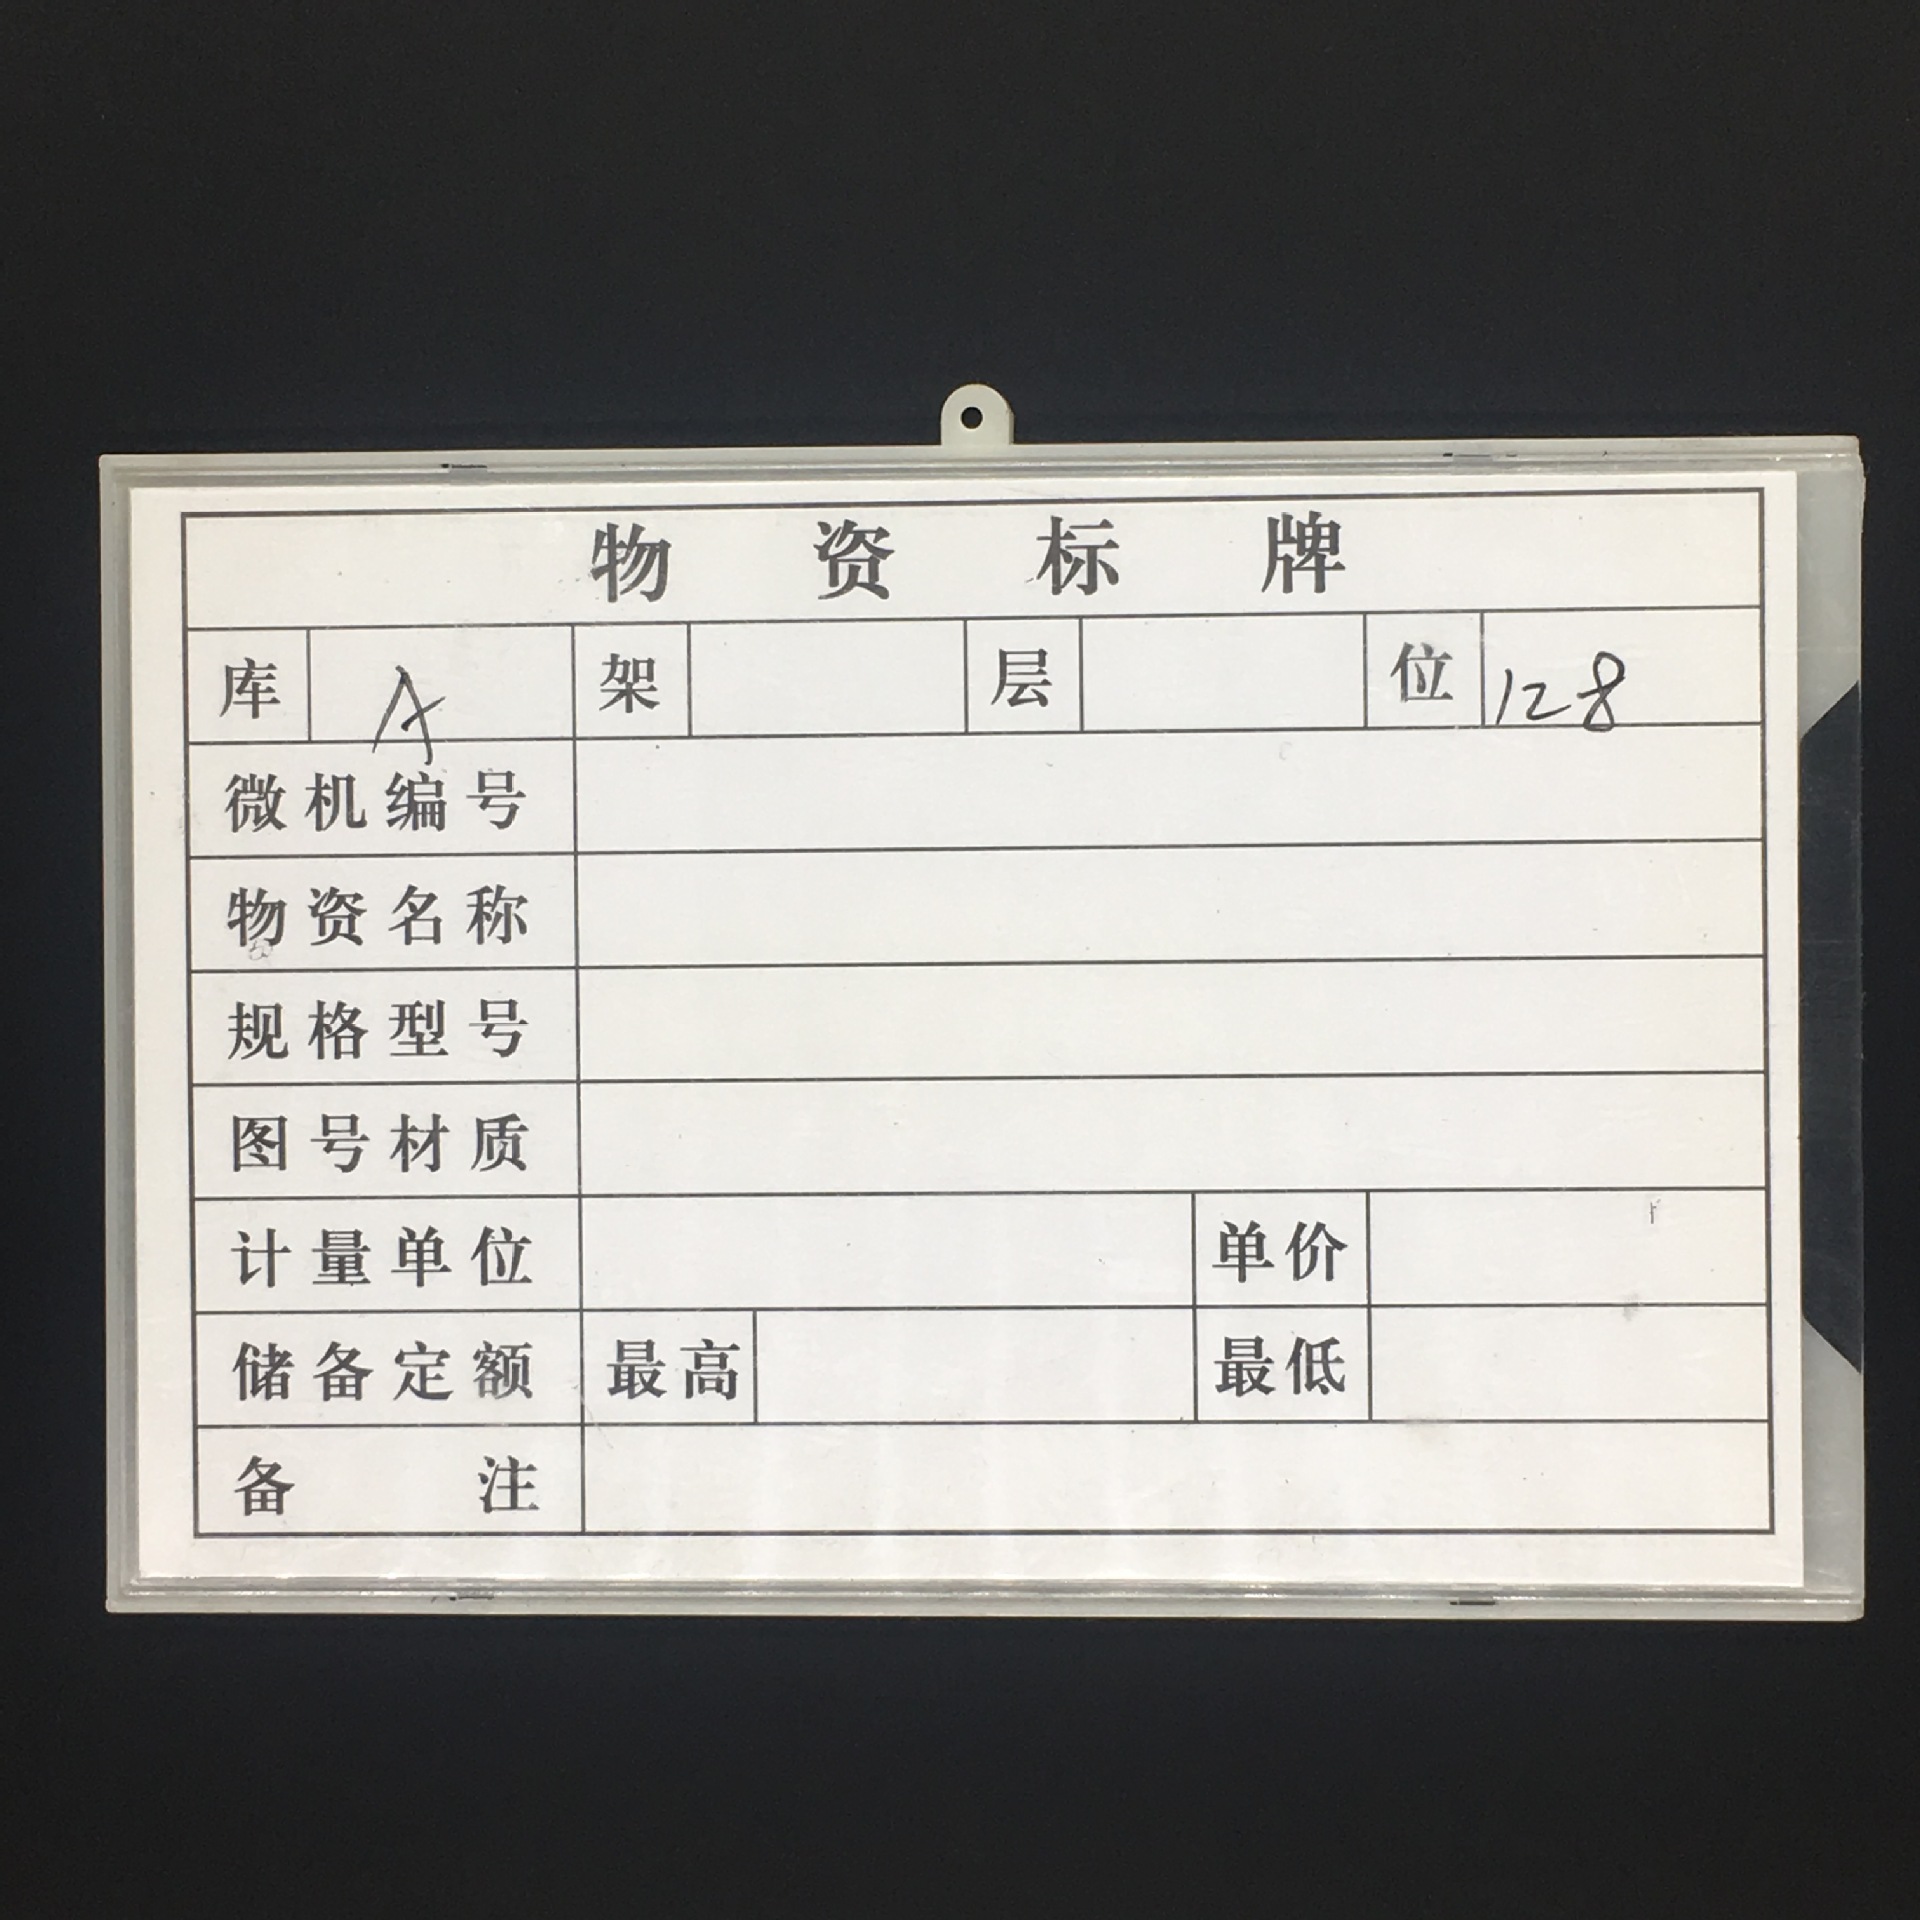 物资标牌
库 A 架 层 位 128
微机编号
物资名称
规格型号
图号材质
计量单位 单价
储备定额 最高 最低
备注